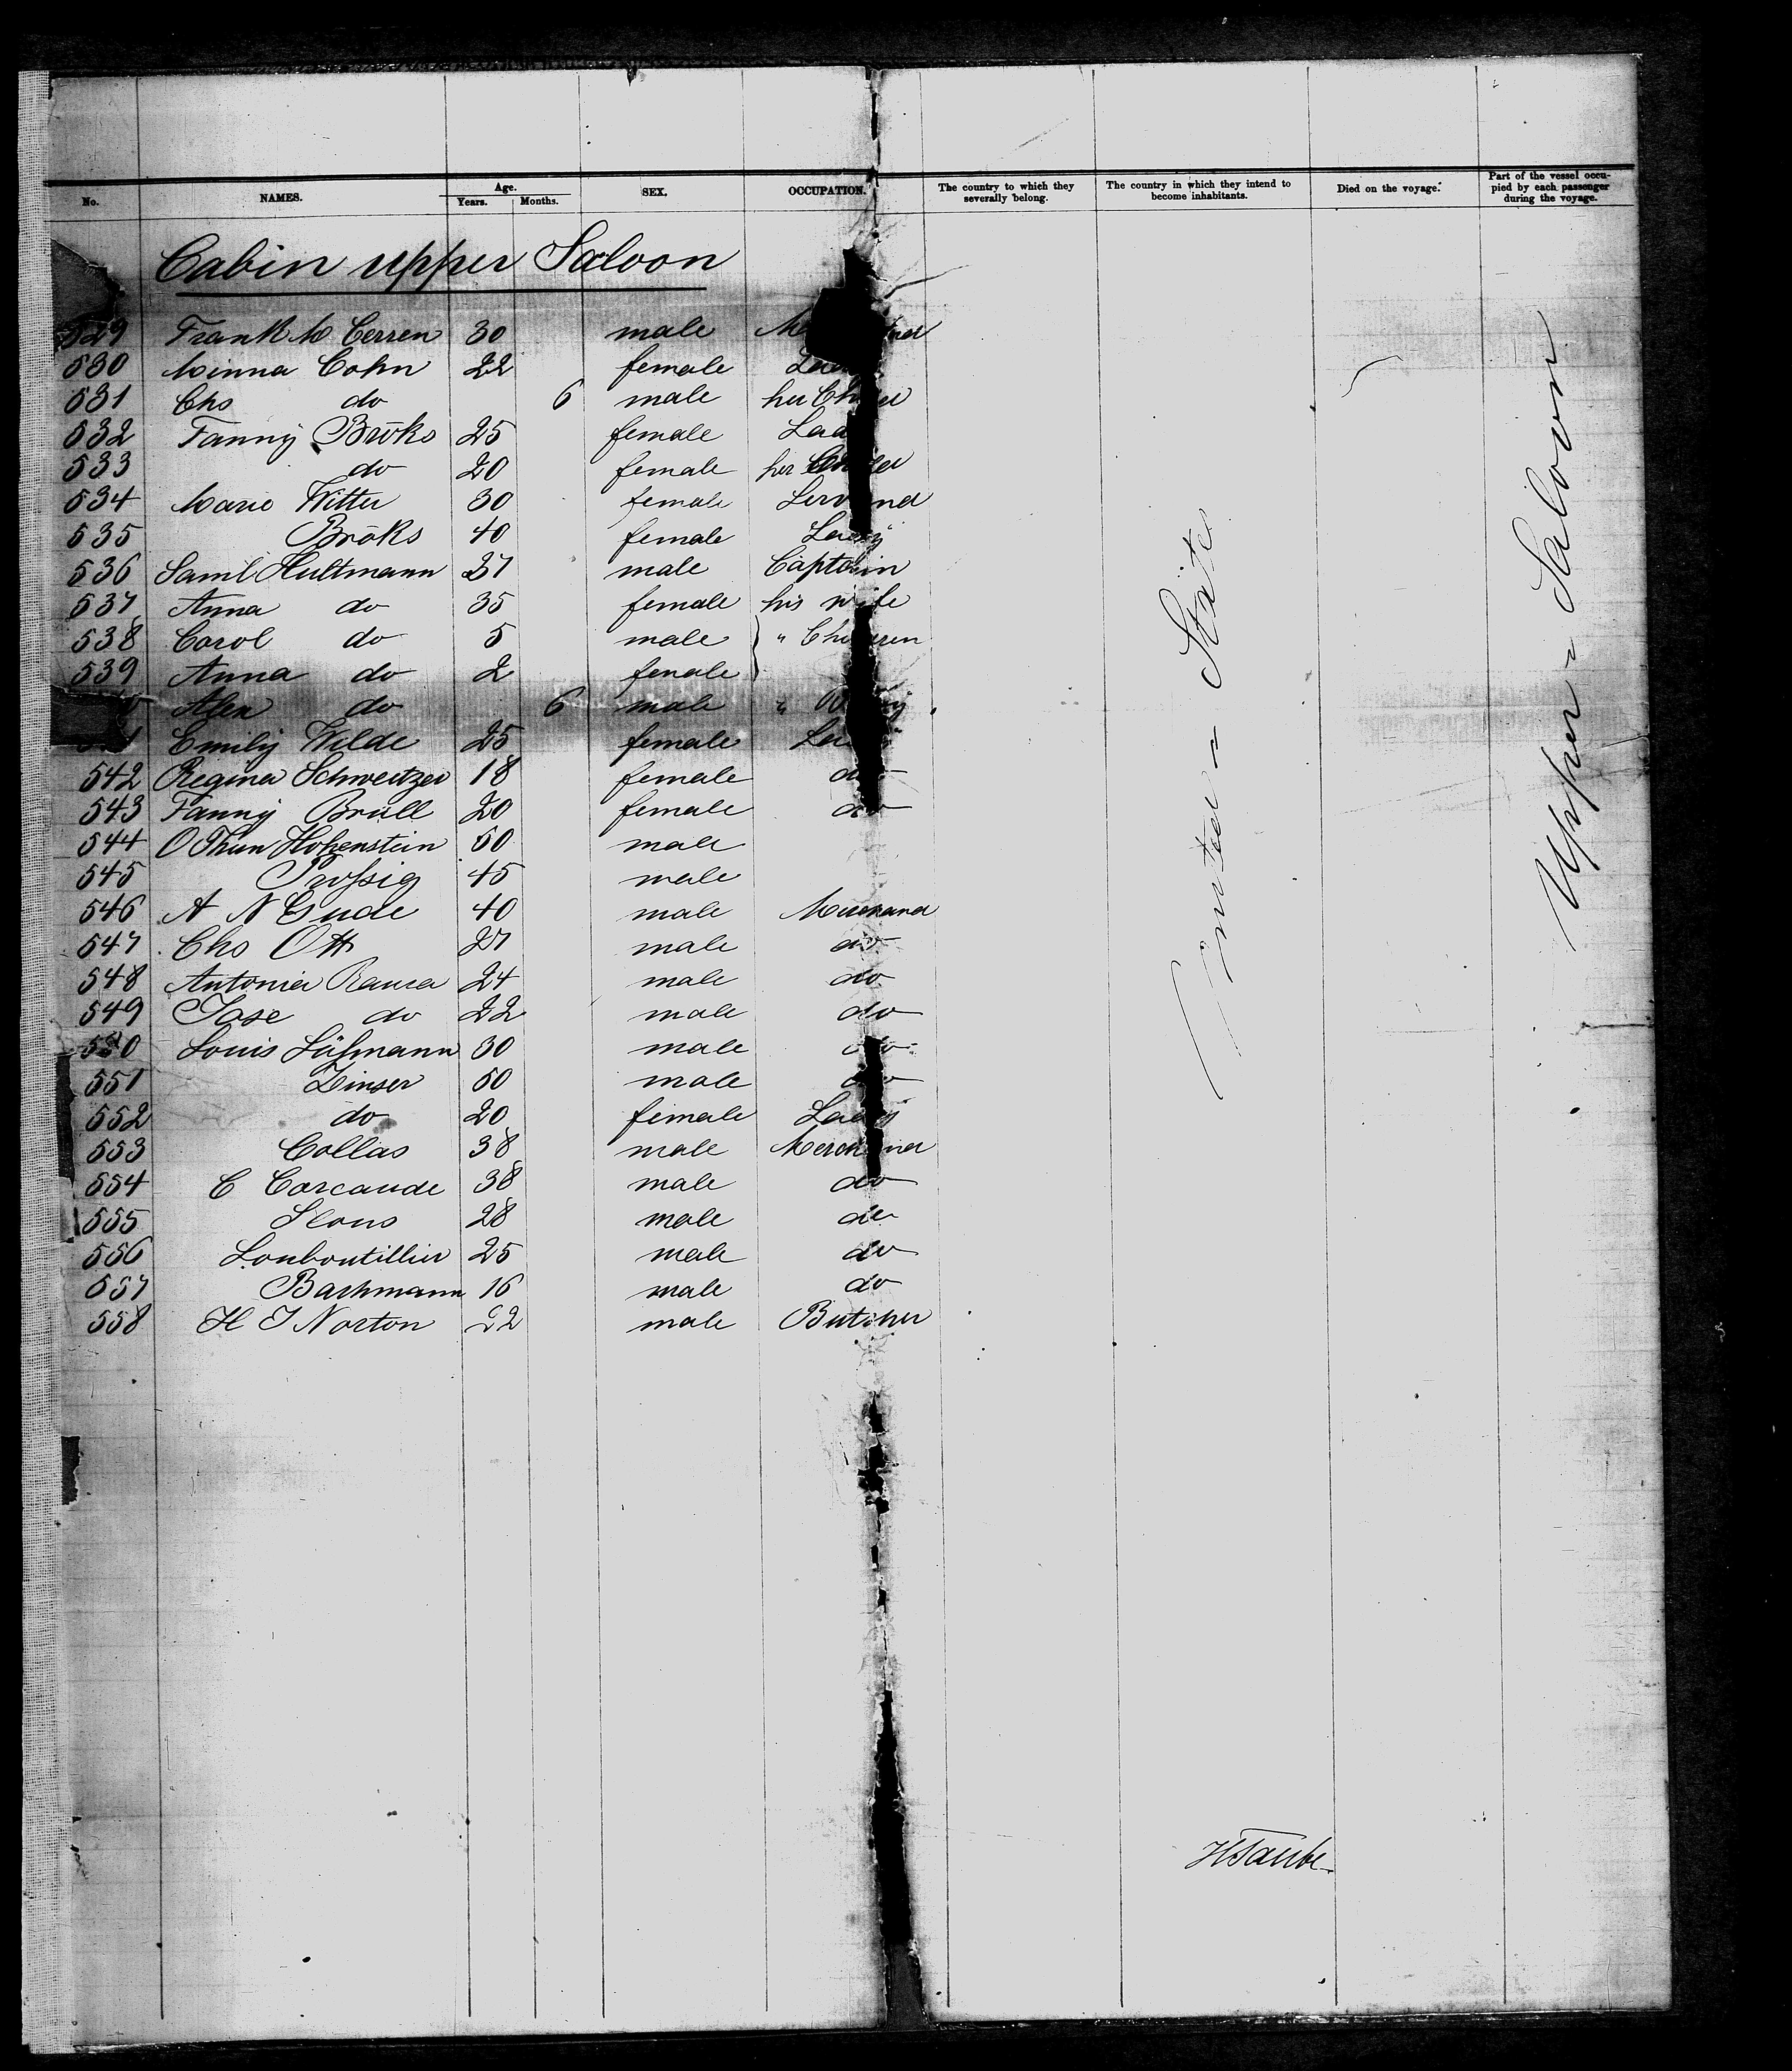 No. NAMES. Age. Years. Months. SEX. OCCUPATION. The country to which they severally belong. The country in which they intend to become inhabitants. Died on the voyage. Part of the vessel occupied by each passenger during the voyage.
Cabin upper Saloon
529 Frank Mc Cerren 30 male
530 Minna Cohn 22 female
531 Chs do 6 male her
532 Fanny Bröks 25 female
533 do 20 female her
534 Marie Witter 30 female
535 Bröks 40 female Lady
536 Saml Hultmann 27 male Captain
537 Anna do 35 female his wife
538 Carol do 5 male " Children
539 Anna do 2 female
Alex do 6 male "
Emily Wilde 25 female
542 Regina Schweitzer 18 female do
543 Fanny Brüll 20 female do
544 O Thun Hohenstein 50 male
545 45 male
546 A N Gude 40 male
547 Chs Ott 27 male do
548 Antonia Rauca 24 male do
549 Jose do 22 male do
550 Louis 30 male do
551 Zinser 50 male do
552 do 20 female Lady
553 Collas 38 male
554 C Carcaude 38 male do
555 Slous 28 male do
556 Louboutillier 25 male do
557 Bachmann 16 male do
558 H J Norton 22 male Butcher
United = State
Upper = Saloon
H Taube